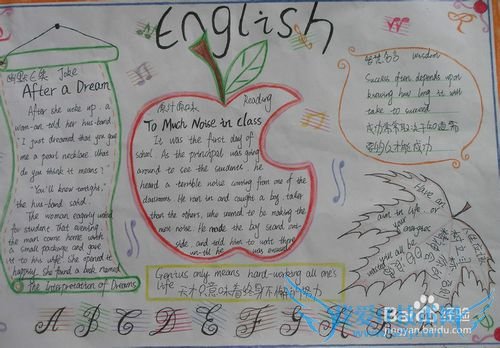 English
幽默 Joke
After a Dream
After she woke up, a
woman told her husband,
"I just dreamed that you gave
me a pearl necklace. What
do you think it means?"
"You'll know tonight."
the husband said.
The woman eagerly waited
for student. That evening
the man came home with
a small package and gave
it to his wife. She opened it
happily. She found a book named
The Interpretation of Dreams
Reading
To Much Noise in class
It was the first day of
school. As the principal was going
around to see the students, he
heard a terrible noise coming from one of the
classrooms. He ran in and caught a boy, taller
than the others, who seemed to be making the
most noise. He made the boy stand out-
side and told him to wait there
until he was excused
Genius only means hard-working all one's
life
天才只意味着终身不懈的努力
wisdom
Success often depends upon
knowing how long it will
take to succeed
成功常常取决于知道需
要多久才能成功
Have an
aim in life, or
your energies
will all be
wasted
A B C D E F G H
Baidu 经验
jingyan.baidu.com